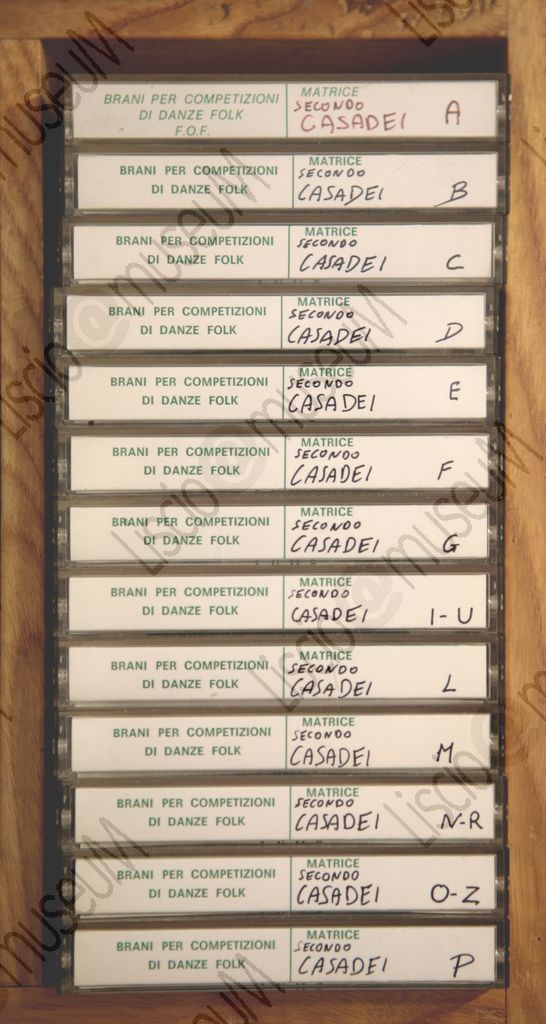 BRANI PER COMPETIZIONI
DI DANZE FOLK
F.O.F.
MATRICE
SECONDO
CASADEI A
BRANI PER COMPETIZIONI
DI DANZE FOLK
MATRICE
SECONDO
CASADEI B
BRANI PER COMPETIZIONI
DI DANZE FOLK
MATRICE
SECONDO
CASADEI C
BRANI PER COMPETIZIONI
DI DANZE FOLK
MATRICE
SECONDO
CASADEI D
BRANI PER COMPETIZIONI
DI DANZE FOLK
MATRICE
SECONDO
CASADEI E
BRANI PER COMPETIZIONI
DI DANZE FOLK
MATRICE
SECONDO
CASADEI F
BRANI PER COMPETIZIONI
DI DANZE FOLK
MATRICE
SECONDO
CASADEI G
BRANI PER COMPETIZIONI
DI DANZE FOLK
MATRICE
SECONDO
CASADEI I-U
BRANI PER COMPETIZIONI
DI DANZE FOLK
MATRICE
SECONDO
CASADEI L
BRANI PER COMPETIZIONI
DI DANZE FOLK
MATRICE
SECONDO
CASADEI M
BRANI PER COMPETIZIONI
DI DANZE FOLK
MATRICE
SECONDO
CASADEI N-R
BRANI PER COMPETIZIONI
DI DANZE FOLK
MATRICE
SECONDO
CASADEI O-Z
BRANI PER COMPETIZIONI
DI DANZE FOLK
MATRICE
SECONDO
CASADEI P
Liscio@museuM
Liscio@museuM
Liscio@museuM